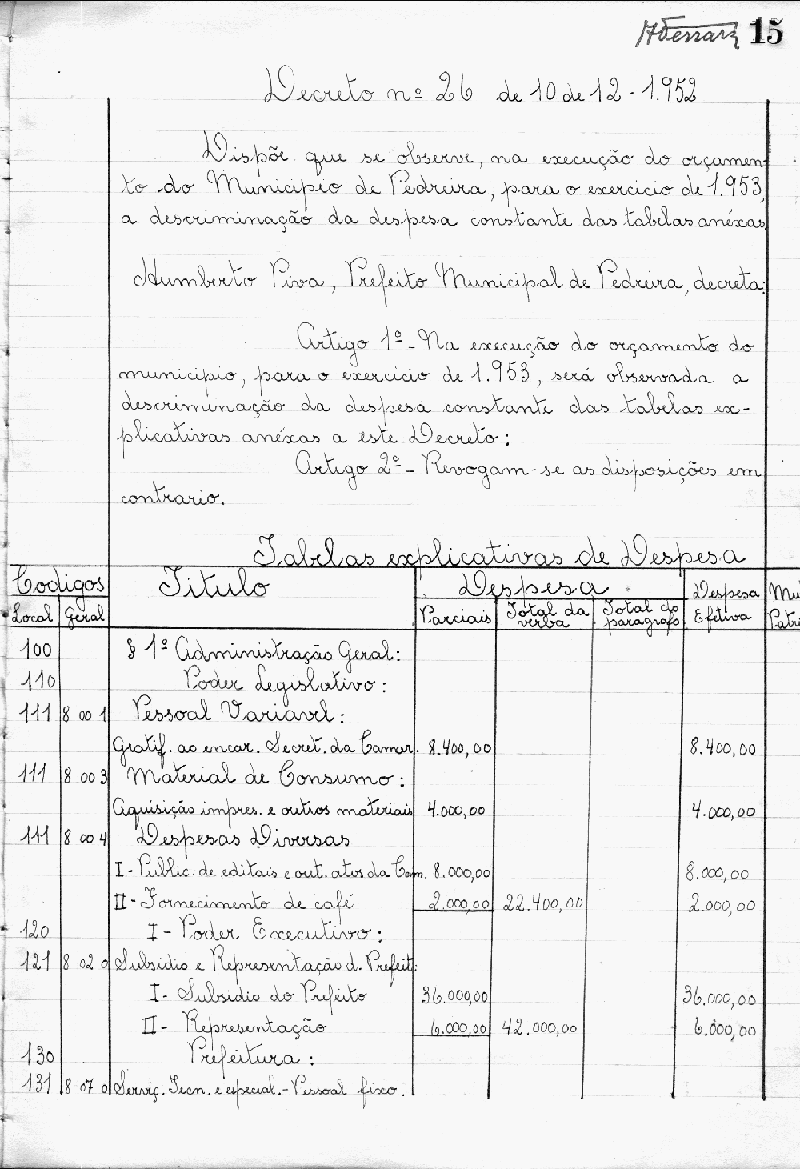 15
Decreto nº 26 de 10 de 12 - 1.952
Dispõr que se observe, na execução do orçamen-
to do Município de Pedreira, para o exercício de 1.953,
a descriminação da despesa constante das tabelas anéxas
Humberto Piva, Prefeito Municipal de Pedreira, decreta:
Artigo 1º - Na execução do orçamento do
município, para o exercício de 1.953, será observada a
descriminação da despesa constante das tabelas ex-
plicativas anéxas a este Decreto:
Artigo 2º - Revogam-se as disposições em
contrario.
Tabelas explicativas de Despesa
Codigos Titulo Despesa Despesa Mu
Local Geral Parciais Total da verba Total do paragrafo Efetiva Patri
100 § 1º Administração Geral:
110 Poder Legislativo:
111 8 00 1 Pessoal Variavel:
Gratif. ao encar. Secret. da Camar. 8.400,00 8.400,00
111 8 00 3 Material de Consumo:
Aquisição impres. e outros materiais 4.000,00 4.000,00
111 8 00 4 Despesas Diversas
I - Public. de editais e out. atos da Cam. 8.000,00 8.000,00
II - Fornecimento de café 2.000,00 22.400,00 2.000,00
120 I - Poder Executivo:
121 8 02 0 Subsidio e Representação d. Prefeit:
I - Subsidio do Prefeito 36.000,00 36.000,00
II - Representação 6.000,00 42.000,00 6.000,00
130 Prefeitura:
131 8 07 0 Serviç. Tecn. e especial. - Pessoal fixo.